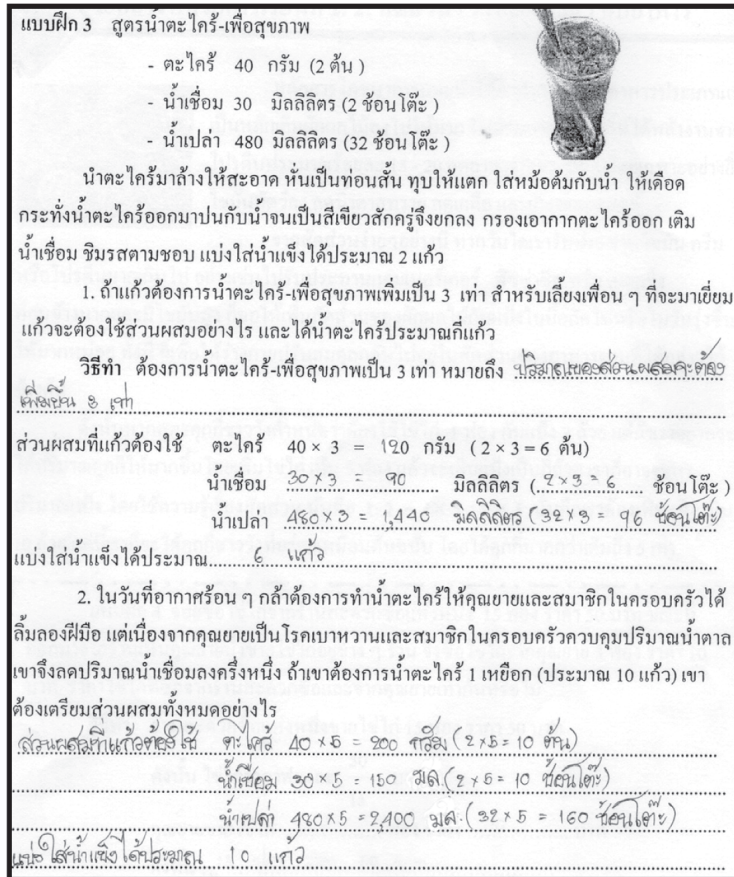 แบบฝึก 3 สูตรน้ำตะไคร้-เพื่อสุขภาพ
- ตะไคร้ 40 กรัม (2 ต้น )
- น้ำเชื่อม 30 มิลลิลิตร (2 ช้อนโต๊ะ )
- น้ำเปล่า 480 มิลลิลิตร (32 ช้อนโต๊ะ )
นำตะไคร้มาล้างให้สะอาด หั่นเป็นท่อนสั้น ทุบให้แตก ใส่หม้อต้มกับน้ำ ให้เดือด
กระทั่งน้ำตะไคร้ออกมาปนกับน้ำจนเป็นสีเขียวสักครู่จึงยกลง กรองเอากากตะไคร้ออก เติม
น้ำเชื่อม ชิมรสตามชอบ แบ่งใส่น้ำแข็งได้ประมาณ 2 แก้ว
1. ถ้าแก้วต้องการน้ำตะไคร้-เพื่อสุขภาพเพิ่มเป็น 3 เท่า สำหรับเลี้ยงเพื่อน ๆ ที่จะมาเยี่ยม
แก้วจะต้องใช้ส่วนผสมอย่างไร และได้น้ำตะไคร้ประมาณกี่แก้ว
วิธีทำ ต้องการน้ำตะไคร้-เพื่อสุขภาพเป็น 3 เท่า หมายถึง ปริมาณของส่วนผสมจะต้อง
เพิ่มขึ้น 3 เท่า
ส่วนผสมที่แก้วต้องใช้ ตะไคร้ 40 × 3 = 120 กรัม ( 2 × 3 = 6 ต้น)
น้ำเชื่อม 30 × 3 = 90 มิลลิลิตร ( 2 × 3 = 6 ช้อนโต๊ะ )
น้ำเปล่า 480 × 3 = 1,440 มิลลิลิตร (32 × 3 = 96 ช้อนโต๊ะ)
แบ่งใส่น้ำแข็งได้ประมาณ 6 แก้ว
2. ในวันที่อากาศร้อน ๆ กล้าต้องการทำน้ำตะไคร้ให้คุณยายและสมาชิกในครอบครัวได้
ลิ้มลองฝีมือ แต่เนื่องจากคุณยายเป็นโรคเบาหวานและสมาชิกในครอบครัวควบคุมปริมาณน้ำตาล
เขาจึงลดปริมาณน้ำเชื่อมลงครึ่งหนึ่ง ถ้าเขาต้องการน้ำตะไคร้ 1 เหยือก (ประมาณ 10 แก้ว) เขา
ต้องเตรียมส่วนผสมทั้งหมดอย่างไร
ส่วนผสมที่แก้วต้องใช้ ตะไคร้ 40 × 5 = 200 กรัม (2 × 5 = 10 ต้น)
น้ำเชื่อม 30 × 5 = 150 มล (2 × 5 = 10 ช้อนโต๊ะ)
น้ำเปล่า 480 × 5 = 2,400 มล. (32 × 5 = 160 ช้อนโต๊ะ)
แบ่งใส่น้ำแข็งได้ประมาณ 10 แก้ว